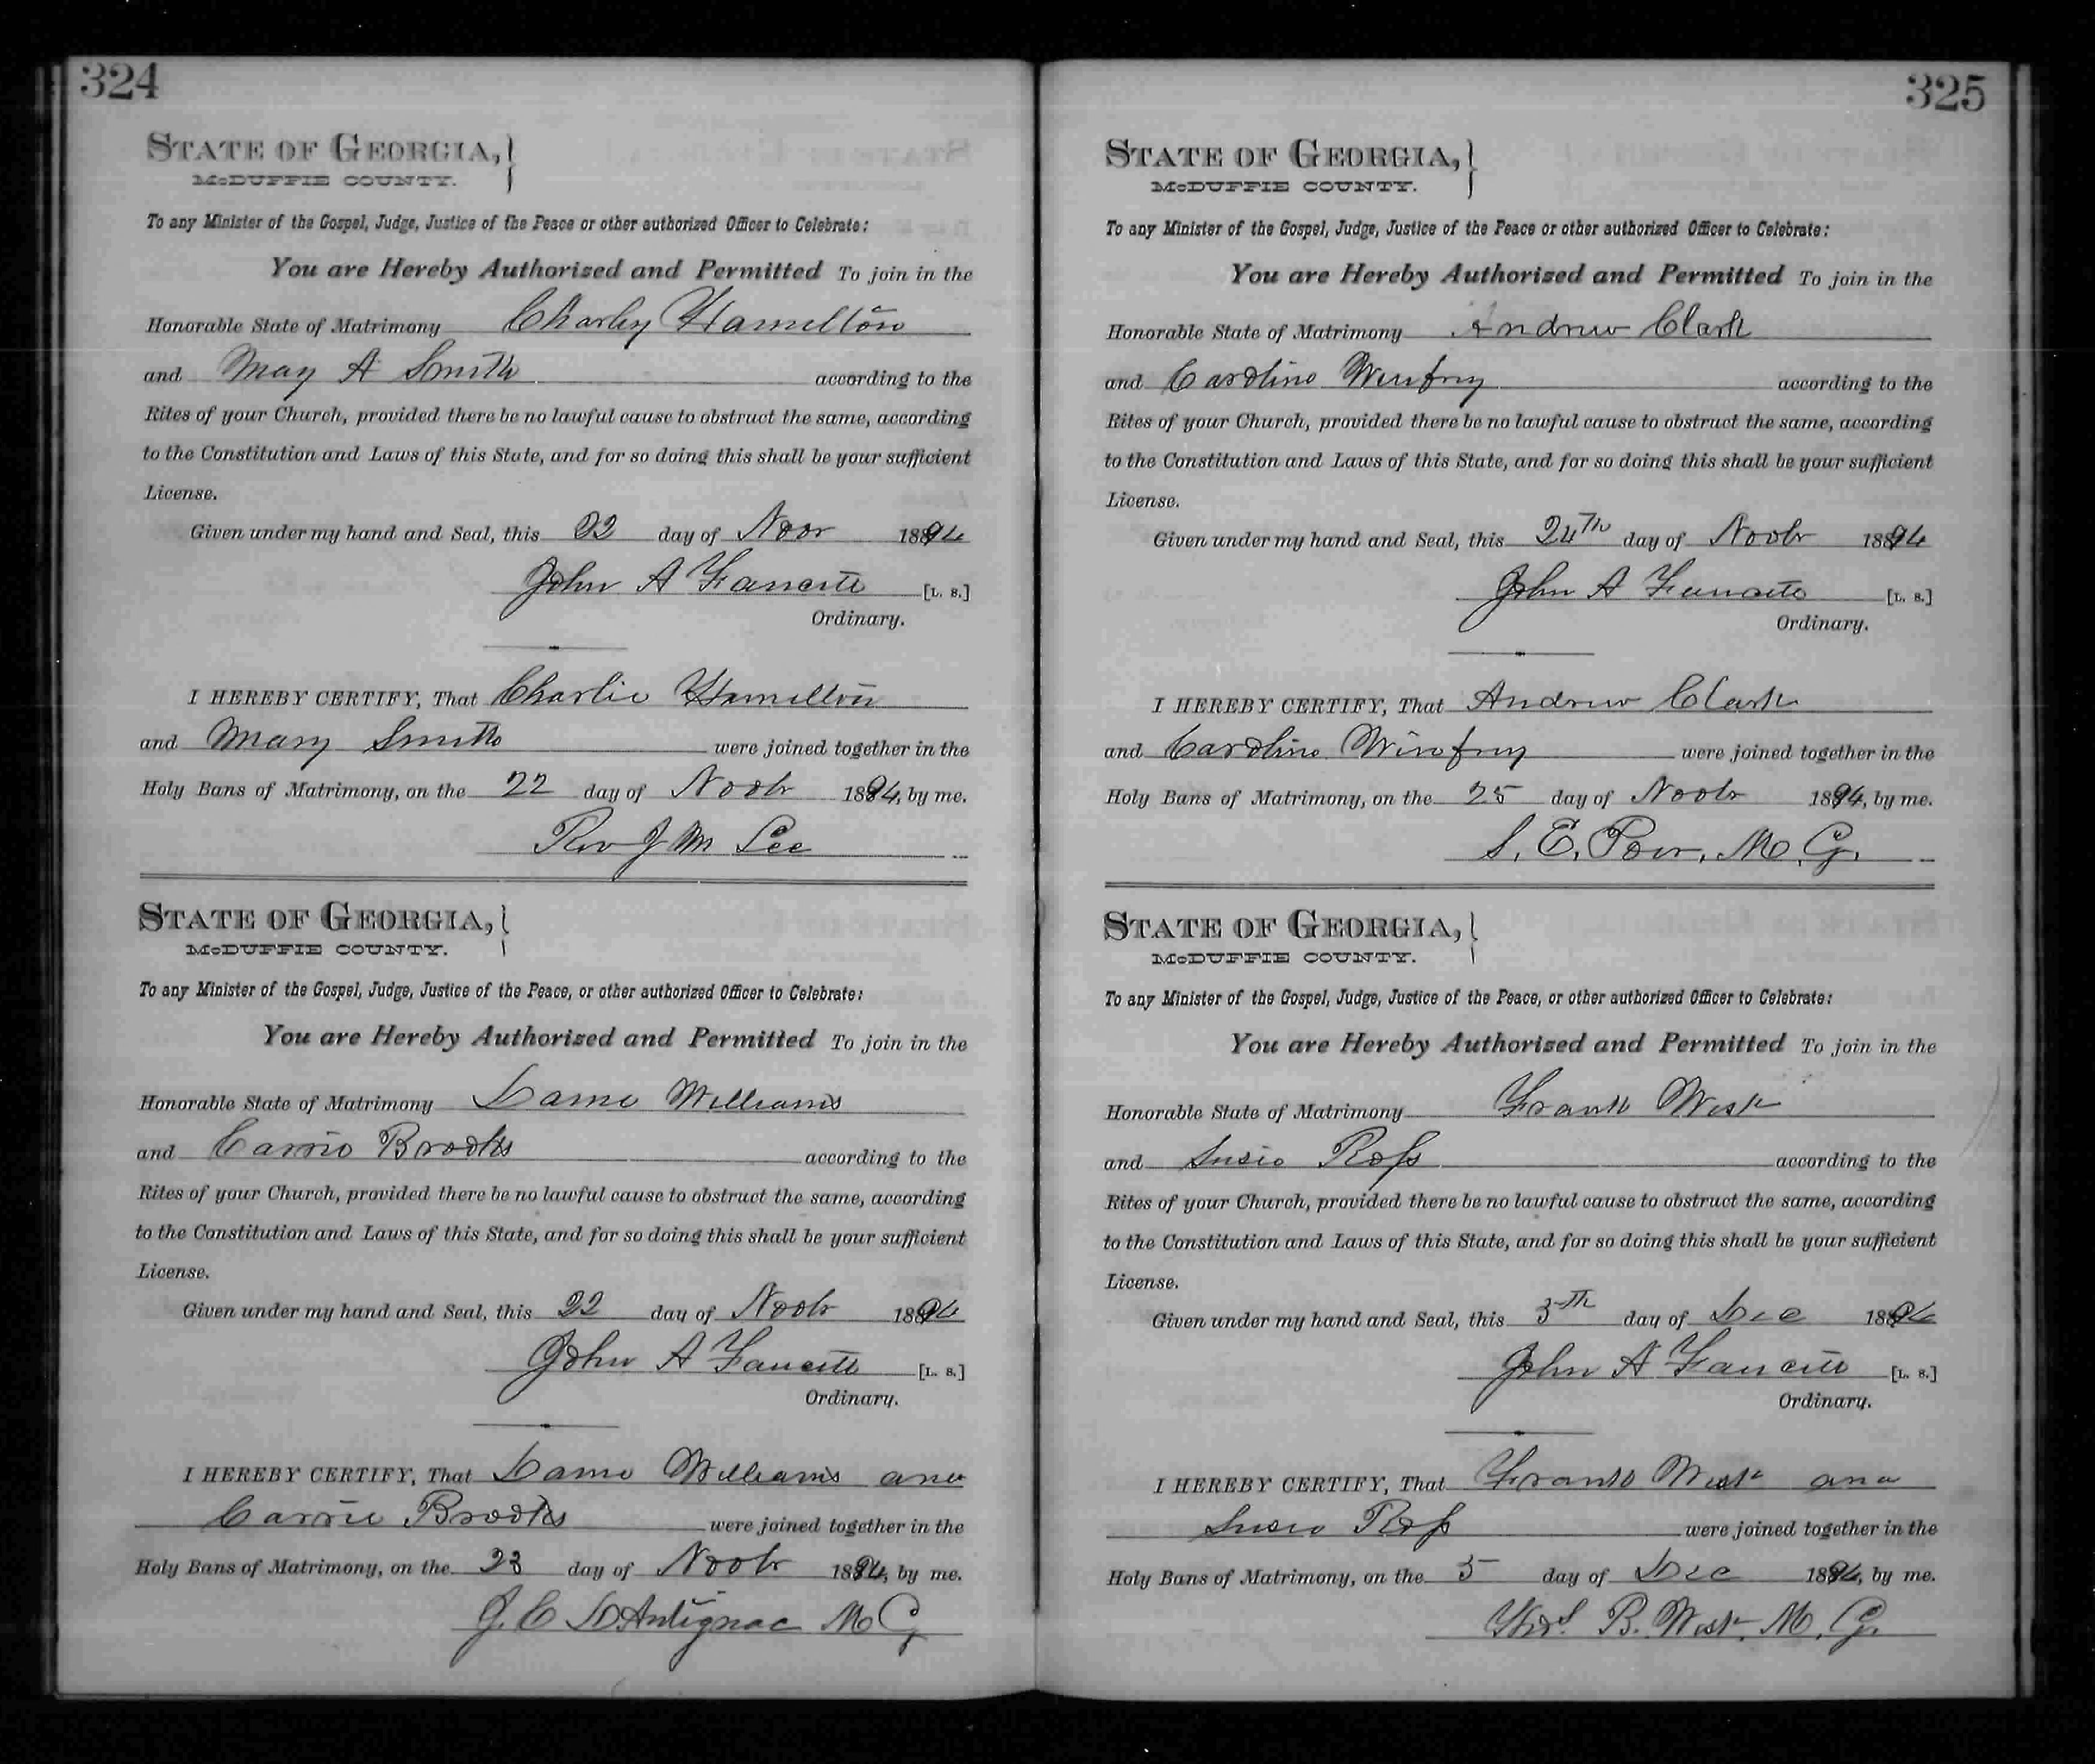 324
STATE OF GEORGIA,
McDUFFIE COUNTY.
To any Minister of the Gospel, Judge, Justice of the Peace or other authorized Officer to Celebrate:
You are Hereby Authorized and Permitted To join in the
Honorable State of Matrimony Charley Hamilton
and May A Smith according to the
Rites of your Church, provided there be no lawful cause to obstruct the same, according
to the Constitution and Laws of this State, and for so doing this shall be your sufficient
License.
Given under my hand and Seal, this 22 day of Novr 1894
John A [L. S.]
Ordinary.
I HEREBY CERTIFY, That Charlie Hamilton
and Mary Smith were joined together in the
Holy Bans of Matrimony, on the 22 day of Novbr 1894, by me.
Rev J M Lee
STATE OF GEORGIA,
McDUFFIE COUNTY.
To any Minister of the Gospel, Judge, Justice of the Peace, or other authorized Officer to Celebrate:
You are Hereby Authorized and Permitted To join in the
Honorable State of Matrimony Williams
and Carrie Brooks according to the
Rites of your Church, provided there be no lawful cause to obstruct the same, according
to the Constitution and Laws of this State, and for so doing this shall be your sufficient
License.
Given under my hand and Seal, this 22 day of Novbr 1894
John A [L. S.]
Ordinary.
I HEREBY CERTIFY, That Williams and
Carrie Brooks were joined together in the
Holy Bans of Matrimony, on the 23 day of Novbr 1894, by me.
J. C DAntignac M G
325
STATE OF GEORGIA,
McDUFFIE COUNTY.
To any Minister of the Gospel, Judge, Justice of the Peace or other authorized Officer to Celebrate:
You are Hereby Authorized and Permitted To join in the
Honorable State of Matrimony Andrew Clark
and Caroline Winfrey according to the
Rites of your Church, provided there be no lawful cause to obstruct the same, according
to the Constitution and Laws of this State, and for so doing this shall be your sufficient
License.
Given under my hand and Seal, this 24th day of Novbr 1894
John A [L. S.]
Ordinary.
I HEREBY CERTIFY, That Andrew Clark
and Caroline Winfrey were joined together in the
Holy Bans of Matrimony, on the 25 day of Novbr 1894, by me.
S. E. M. G.
STATE OF GEORGIA,
McDUFFIE COUNTY.
To any Minister of the Gospel, Judge, Justice of the Peace, or other authorized Officer to Celebrate:
You are Hereby Authorized and Permitted To join in the
Honorable State of Matrimony Frank West
and Susie Ross according to the
Rites of your Church, provided there be no lawful cause to obstruct the same, according
to the Constitution and Laws of this State, and for so doing this shall be your sufficient
License.
Given under my hand and Seal, this 5th day of Dec 1894
John A [L. S.]
Ordinary.
I HEREBY CERTIFY, That Frank West and
Susie Ross were joined together in the
Holy Bans of Matrimony, on the 5 day of Dec 1894, by me.
B. West, M. G.